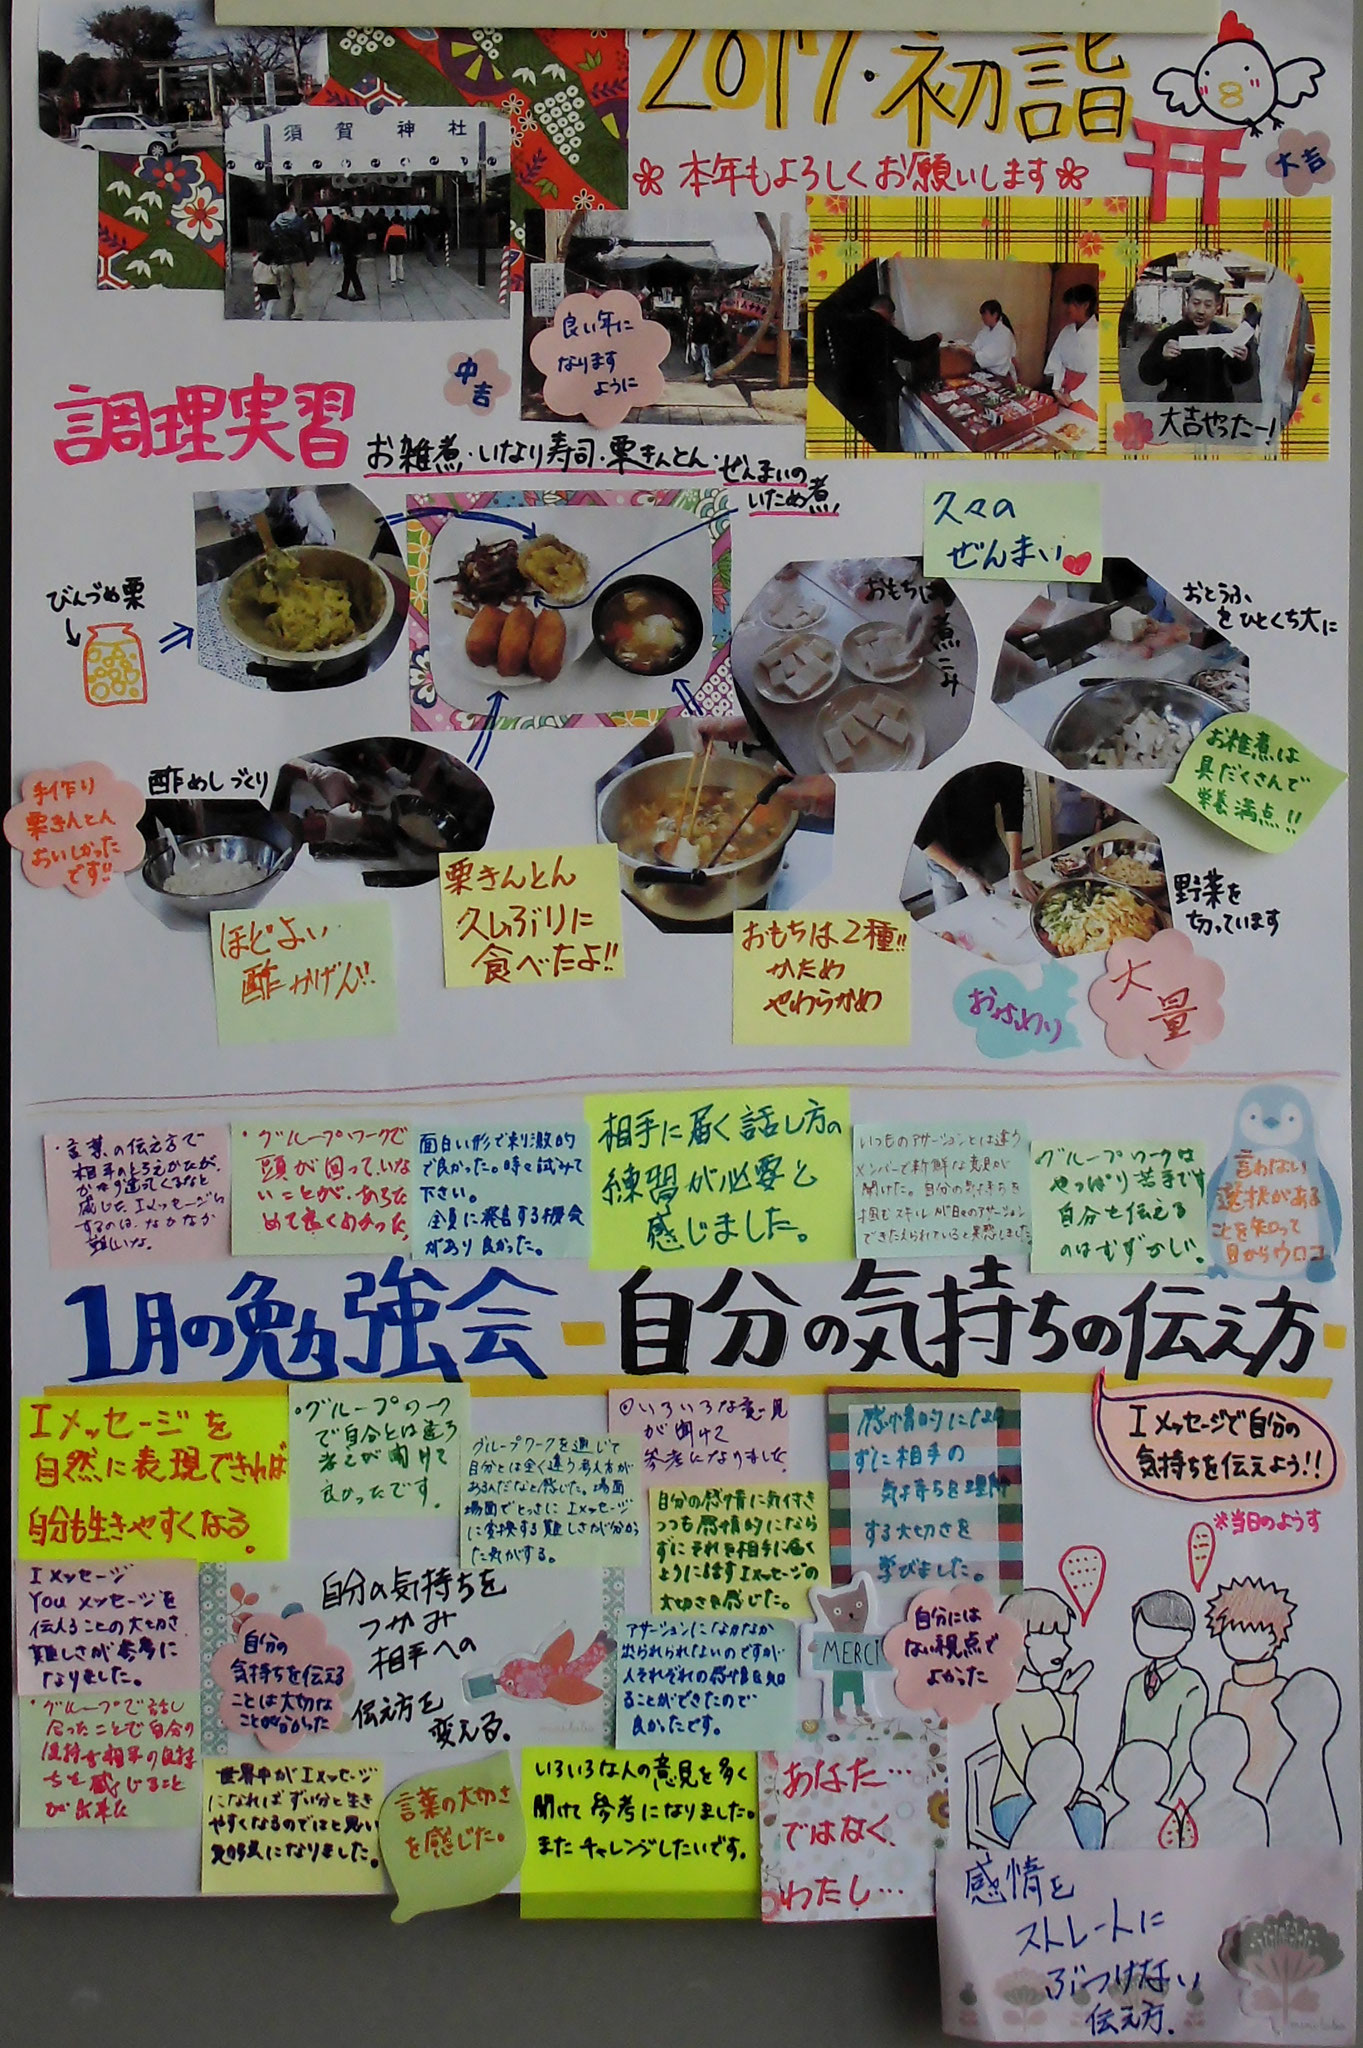 2017.初詣
大吉
本年もよろしくお願いします
須賀神社
良い年に
なります
ように
中吉
大吉やったー!
調理実習
お雑煮・いなり寿司・栗きんとん・ぜんまいの
いため煮
久々の
ぜんまい
びんづめ栗
おもちは
煮こみ
おとうふ
をひとくち大に
お雑煮は
具だくさんで
栄養満点!!
手作り
栗きんとん
おいしかった
です!!
酢めしづくり
ほどよい
酢かげん!!
栗きんとん
久しぶりに
食べたよ!!
おもちは2種!!
かため
やわらかめ
野菜を
切っています
おかわり
大量
・言葉の伝え方で
相手のとらえかたが、
かなり違ってくるなと
感じた。Iメッセージに
するのは、なかなか
難しいな。
・グループワークで
頭が回っていな
いことが、あらた
めて良くわかった。
面白い形で刺激的
で良かった。時々試みて
下さい。
全員に発言する機会
があり良かった。
相手に届く話し方の
練習が必要と
感じました。
いつものアサーションとは違う
メンバーで新鮮な意見が
聞けた。自分の気持ちを
掴むスキルが日々のアサーション
できたえられていると実感しました。
グループワークは
やっぱり苦手です
自分を伝える
のはむずかしい。
言わない
選択がある
ことを知って
目からウロコ
1月の勉強会-自分の気持ちの伝え方-
Iメッセージを
自然に表現できれば
自分も生きやすくなる。
・グループワーク
で自分とは違う
考えが聞けて
良かったです。
グループワークを通じて
自分とは全く違う考え方が
あるんだなと感じた。場面
場面でとっさにIメッセージ
に変換する難しさが分かっ
た気がする。
◎いろいろな意見
が聞けて
参考になりました。
自分の感情に気付き
つつも感情的になら
ずにそれを相手に届く
ように話すIメッセージの
大切さを感じた。
感情的になら
ずに相手の
気持ちを理解
する大切さを
学びました。
Iメッセージで自分の
気持ちを伝えよう!!
※当日のようす
Iメッセージ
Youメッセージを
伝えることの大切さ、
難しさが参考に
なりました。
自分の
気持ちを伝える
ことは大切な
ことが分かった
自分の気持ちを
つかみ
相手への
伝え方を
変える。
アサーションになかなか
出られられないのですが
人それぞれの感情を知
ることができたので
良かったです。
MERCI
自分には
ない視点で
よかった
・グループで話し
合ったことで自分の
気持を相手の気持
ちを感じること
が出来た
世界中がIメッセージ
になればずい分と生き
やすくなるのではと思い
勉強になりました。
言葉の大切さ
を感じた。
いろいろな人の意見を多く
聞けて参考になりました。
またチャレンジしたいです。
あなた…
ではなく、
わたし…
感情を
ストレートに
ぶつけない
伝え方.